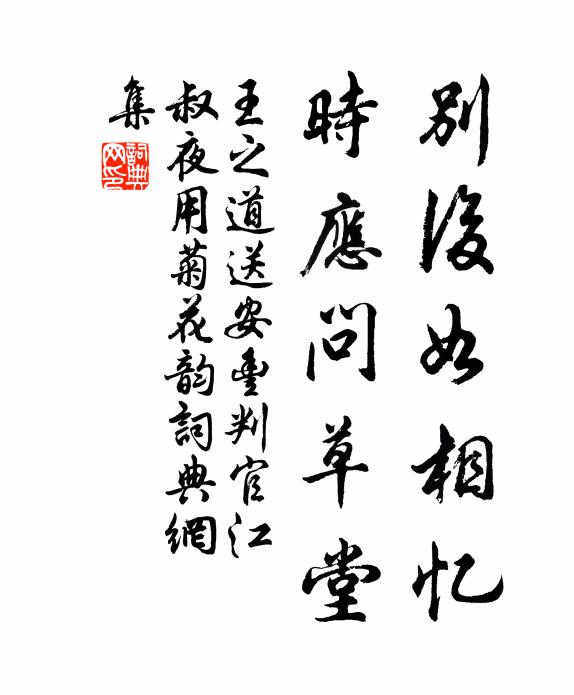 別後如相忆
時應問草堂
王之道送安豊判官江
叔夜用菊花韵詞典網
集
詞典
网印